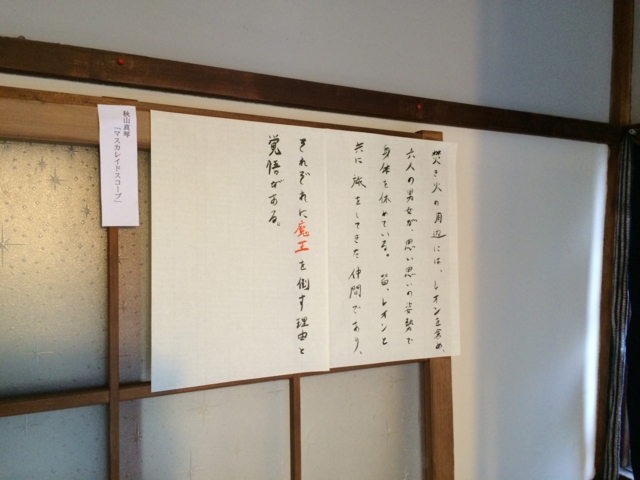 焚き火の周辺には、レオンを含め、
六人の男女が、思い思いの姿勢で
身体を休めている。皆、レオンと
共に旅をしてきた仲間であり、
それぞれに魔王を倒す理由と
覚悟がある。
秋山真琴
「マスカレイドスコープ」